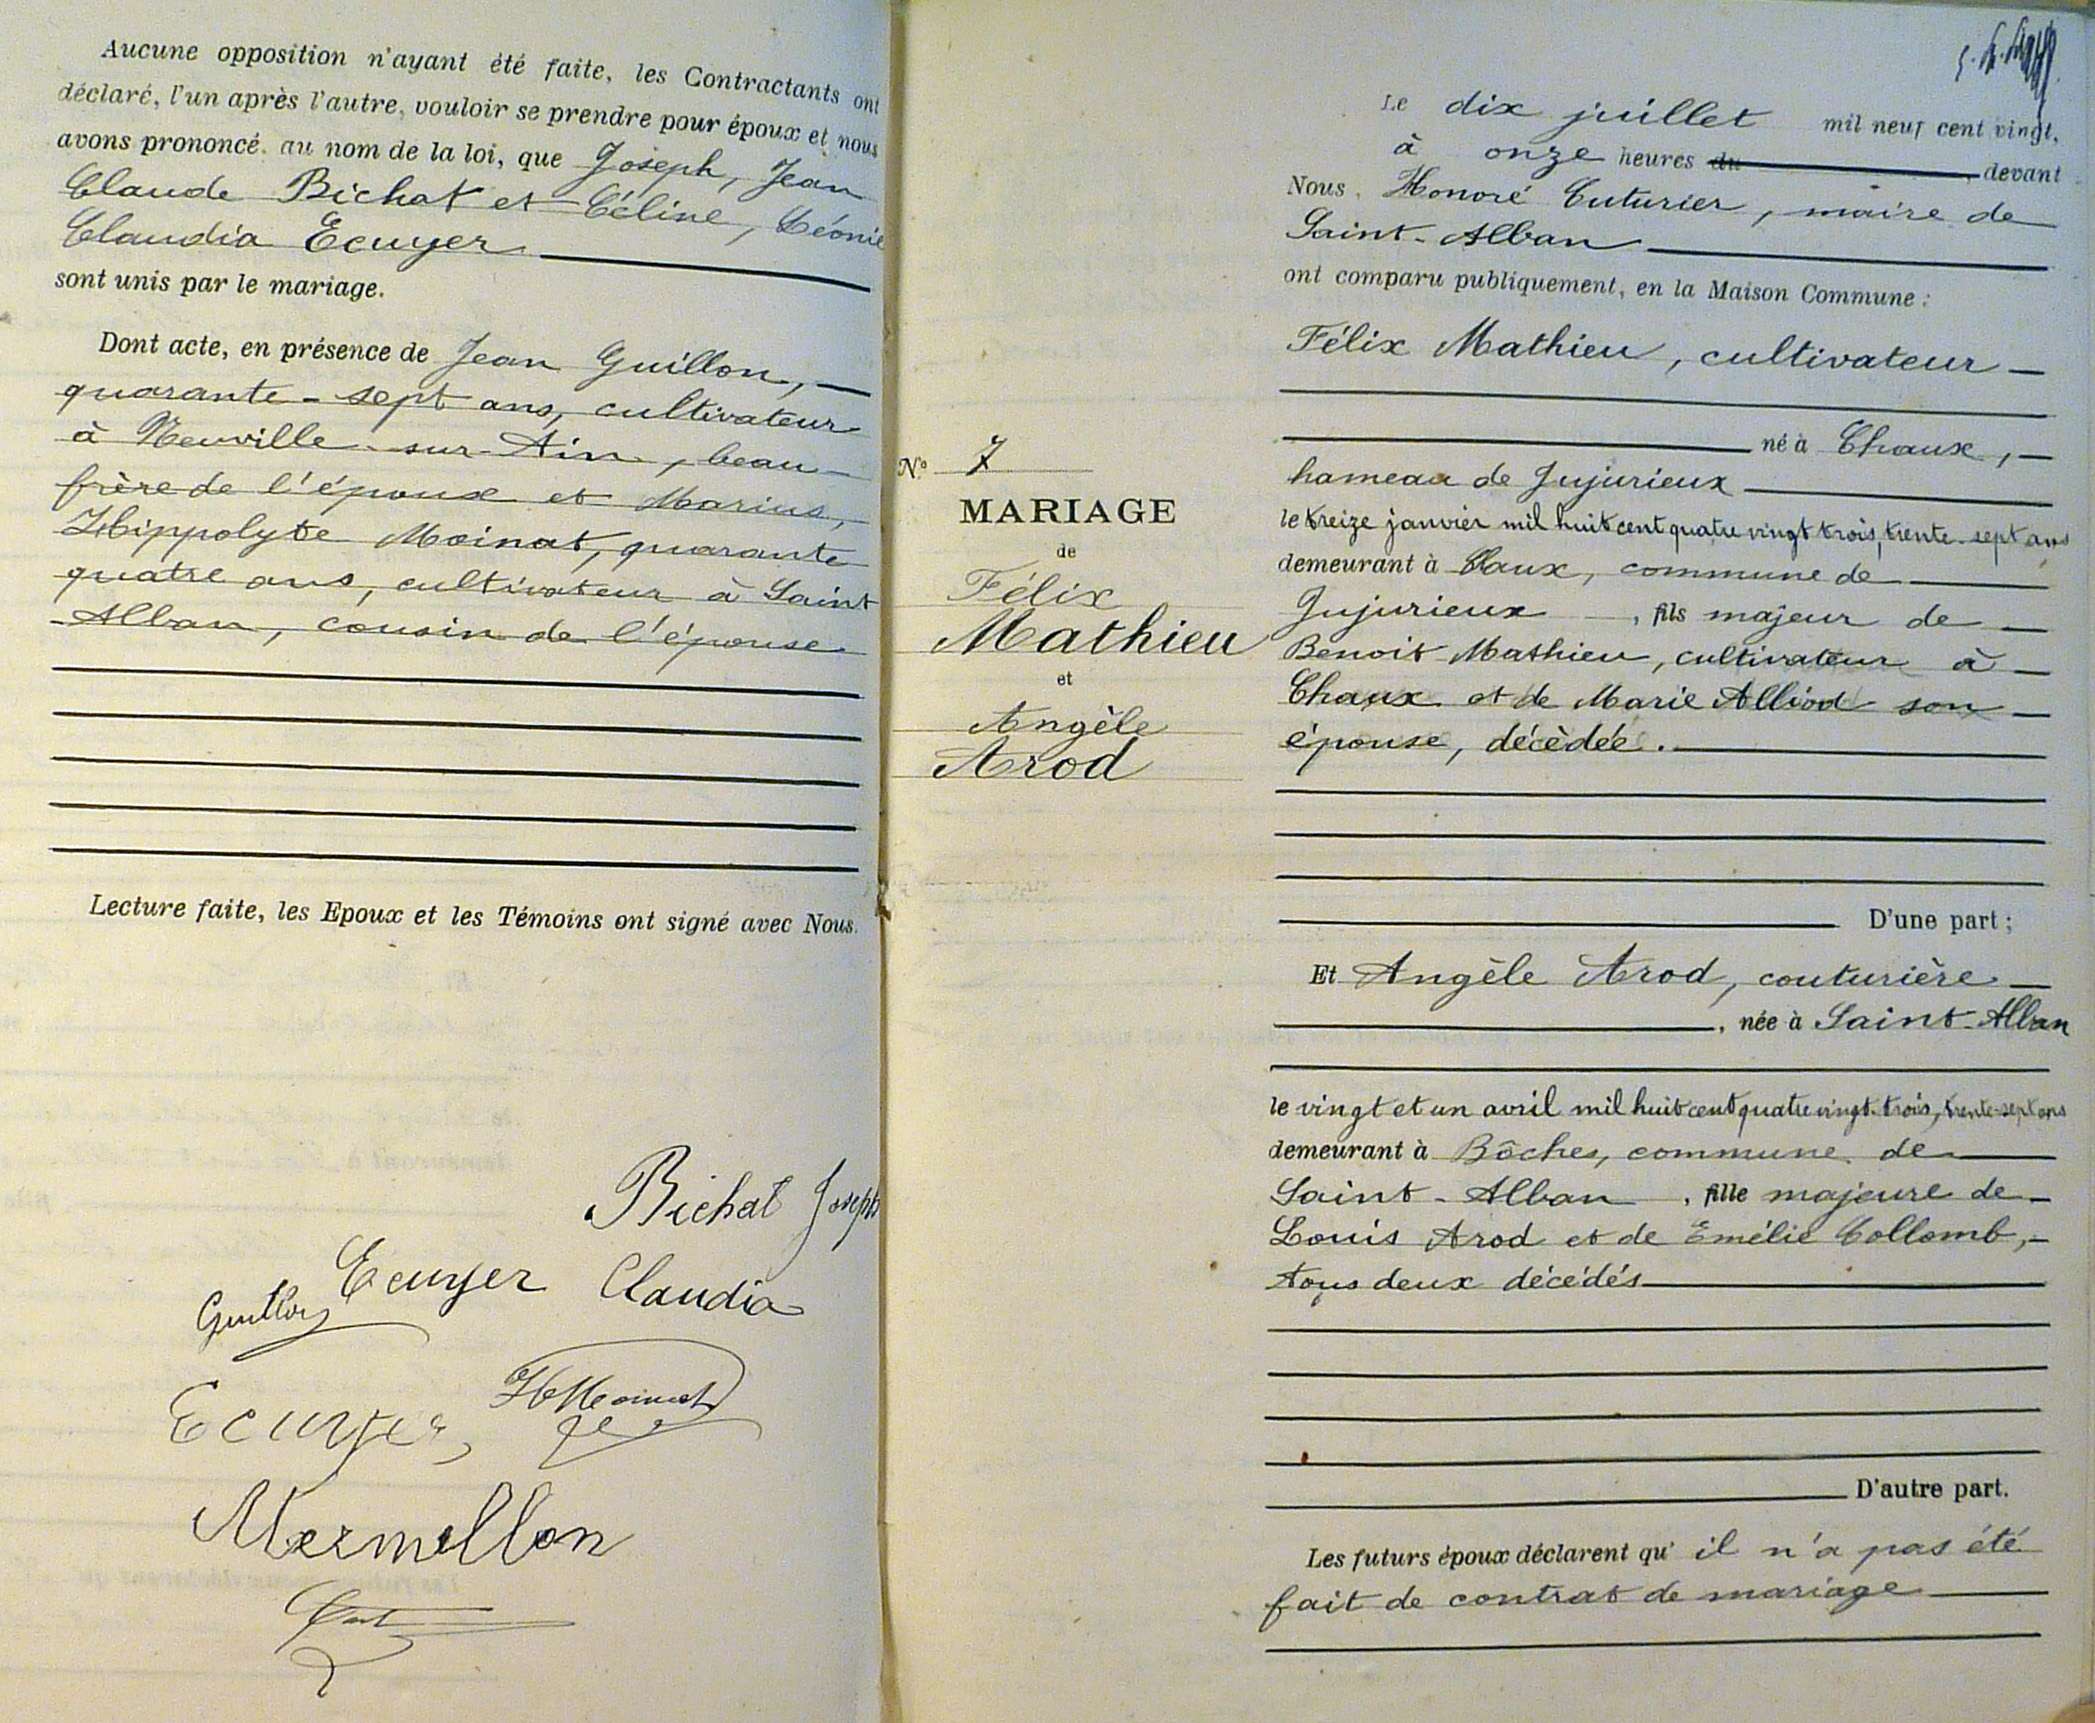 Aucune opposition n'ayant été faite, les Contractants ont
déclaré, l'un après l'autre, vouloir se prendre pour époux et nous
avons prononcé au nom de la loi, que Joseph, Jean
Claude Bichat et Céline, Léonie
Claudia Ecuyer
sont unis par le mariage.
Dont acte, en présence de Jean Guillon,
quarante-sept ans, cultivateur
à Neuville-sur-Ain, beau-
frère de l'époux et Marius,
Hippolyte Moinat, quarante
quatre ans, cultivateur à Saint
-Alban, cousin de l'épouse
Lecture faite, les Epoux et les Témoins ont signé avec Nous.
Bichat Joseph
Ecuyer Claudia
Guillon
H Moinat
Ecuyer
Mermillon
Le dix juillet mil neuf cent vingt,
à onze heures du, devant
Nous, Honoré Cuturier, maire de
Saint-Alban
ont comparu publiquement, en la Maison Commune :
Félix Mathieu, cultivateur
né à Chaux,
hameau de Jujurieux
le treize janvier mil huit cent quatre vingt trois, trente-sept ans
demeurant à Chaux, commune de
Jujurieux, fils majeur de
Benoit Mathieu, cultivateur à
Chaux et de Marie Alliod son
épouse, décèdée.
D'une part ;
N° 7
MARIAGE
de
Félix
Mathieu
et
Angèle
Arod
Et Angèle Arod, couturière
, née à Saint-Alban
le vingt et un avril mil huit cent quatre vingt-trois, trente-sept ans
demeurant à Bôches, commune de
Saint-Alban, fille majeure de
Louis Arod et de Emélie Collomb,
tous deux décédés
D'autre part.
Les futurs époux déclarent qu'il n'a pas été
fait de contrat de mariage